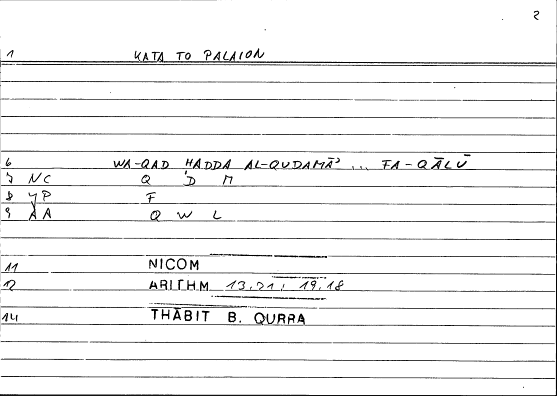 2
1 KATA TO PALAION
6 WA-QAD HADDA AL-QUDAMĀʾ ... FA-QĀLŪ
7 NC Q D M
8 YP F
9 AA Q W L
11 NICOM
12 ARITHM 13,21; 19,18
14 THĀBIT B. QURRA